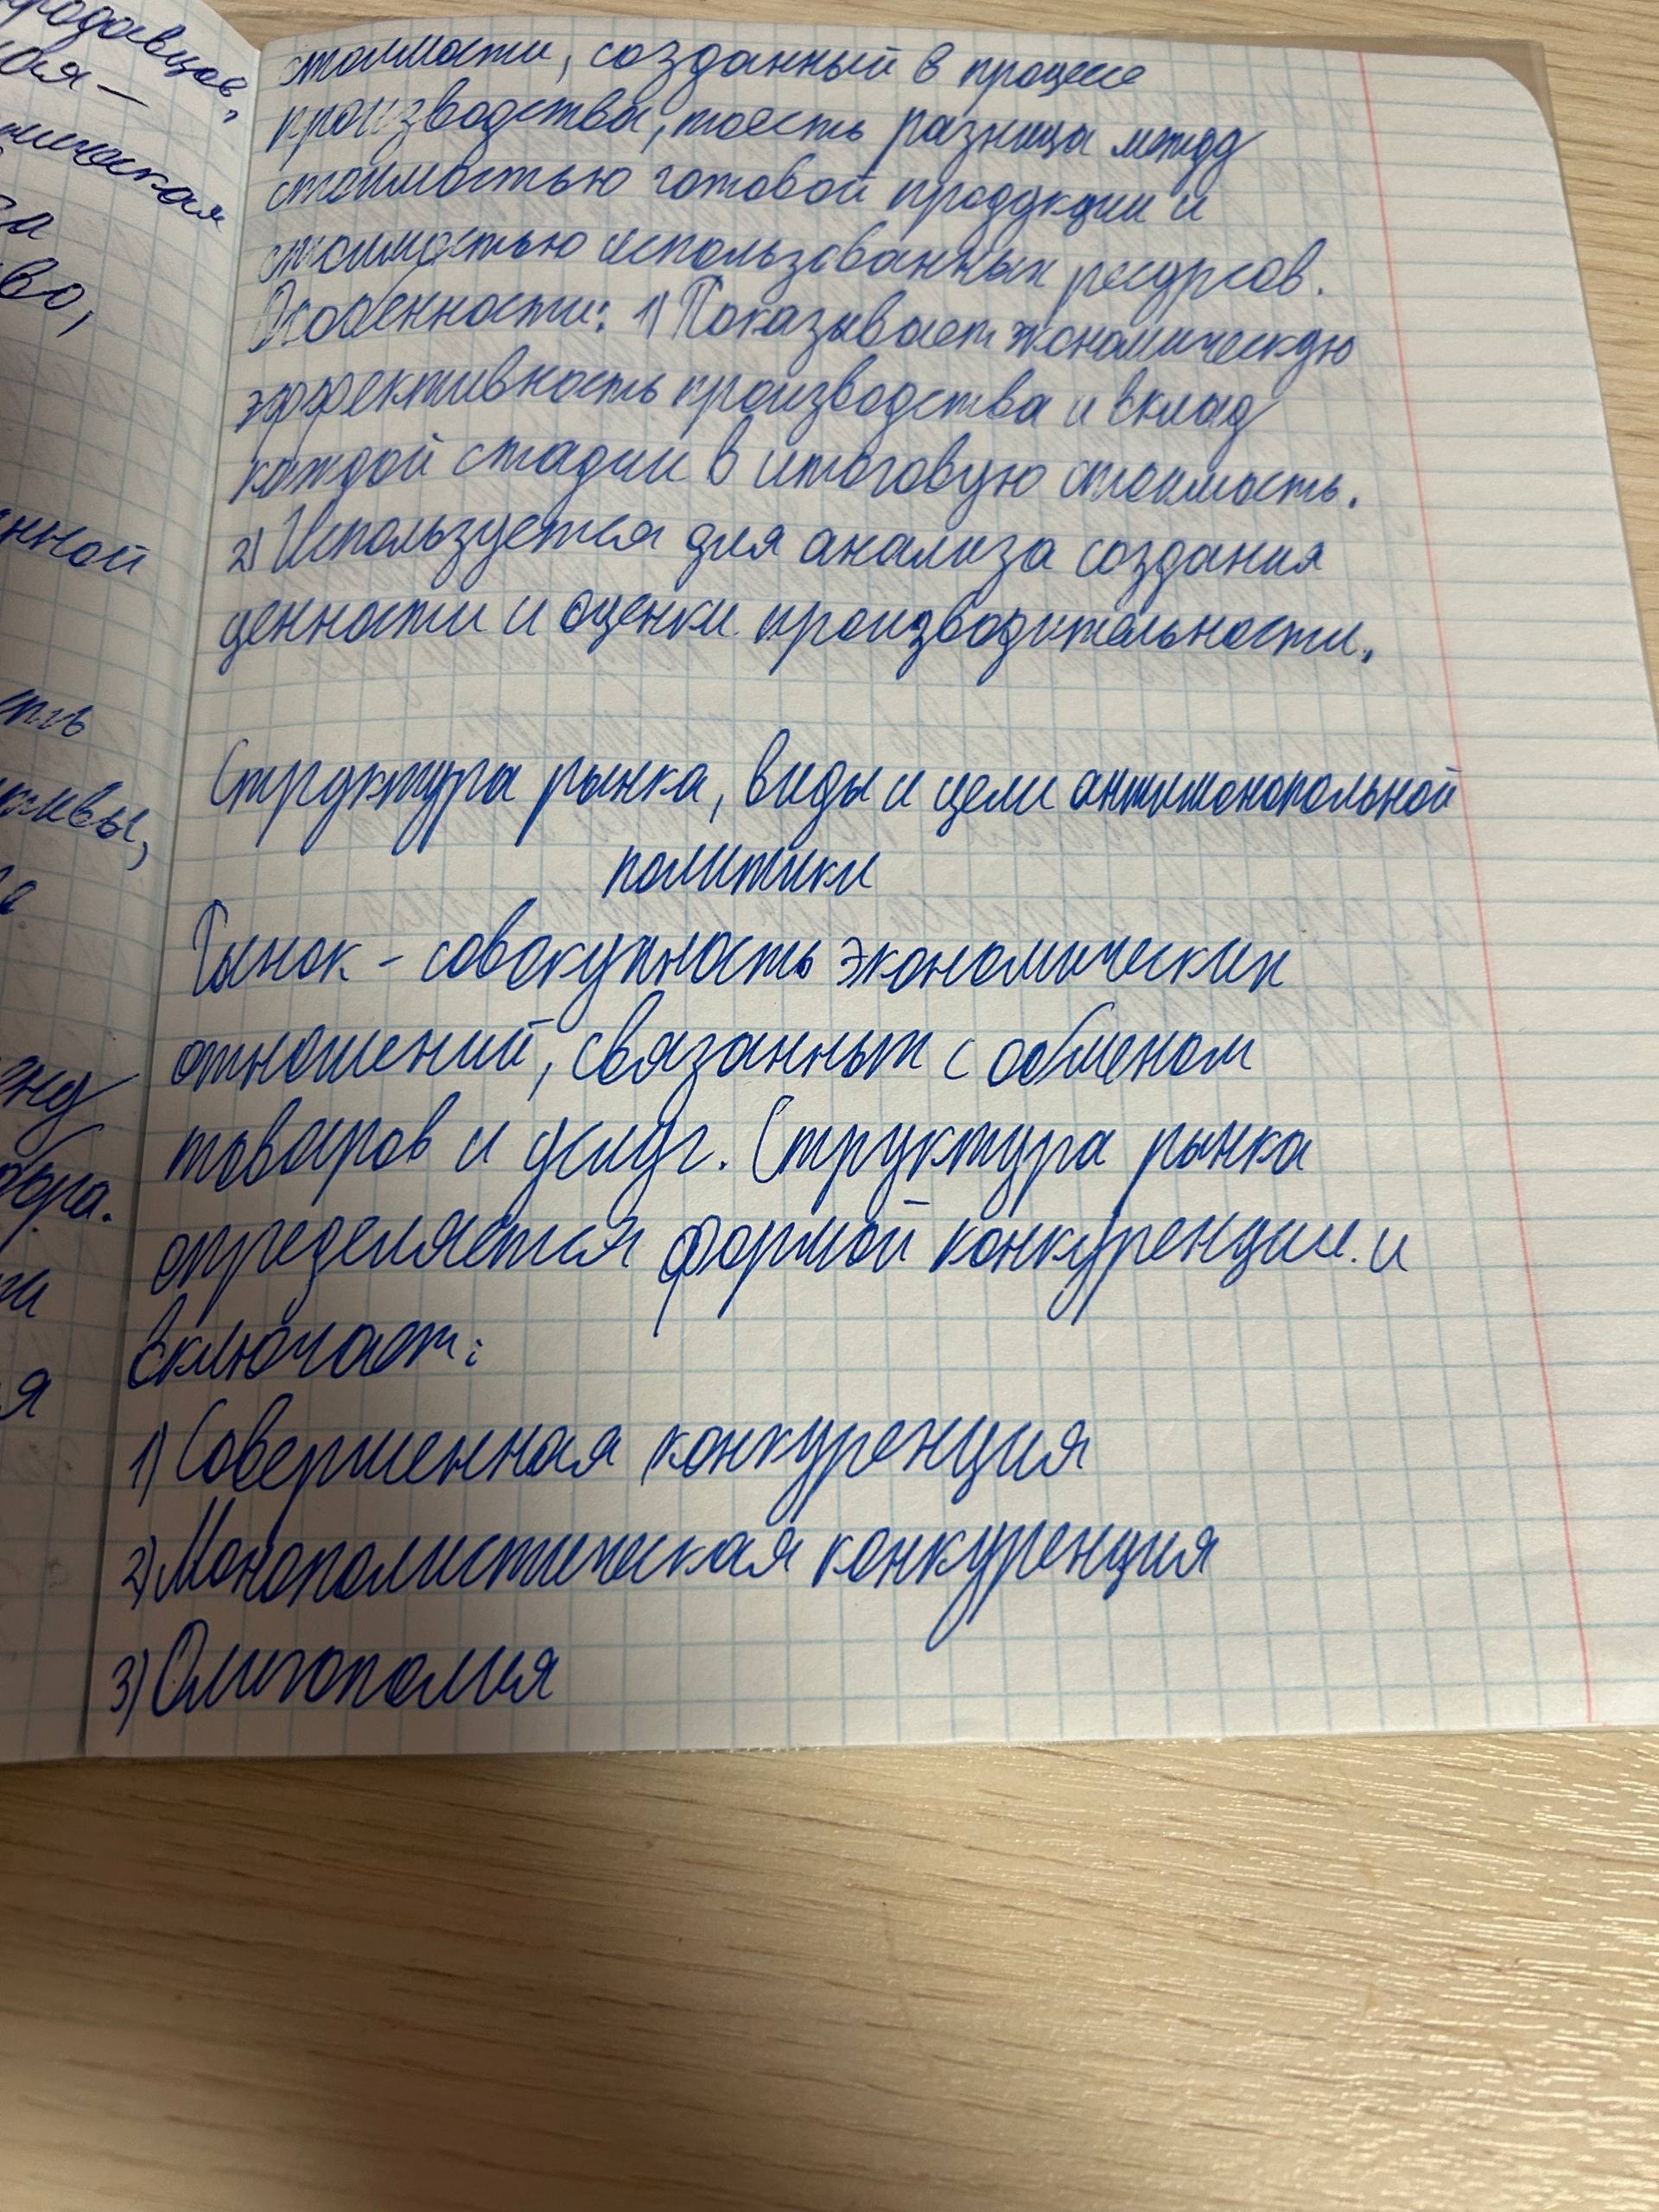 родавцов,
вая –
мическая
за
во,
нной
сть
квы,
ену
я
стоимости, созданный в процессе
производства, тоесть разница между
стоимостью готовой продукции и
стоимостью использованных ресурсов.
Особенности: 1) Показывает экономическую
эффективность производства и вклад
каждой стадии в итоговую стоимость.
2) Используется для анализа создания
ценности и оценки производительности.
Структура рынка, виды и цели антимонопольной
политики
Рынок - совокупность экономических
отношений, связанных с обменом
товаров и услуг. Структура рынка
определяется формой конкуренции и
включает:
1) Совершенная конкуренция
2) Монополистическая конкуренция
3) Олигополия